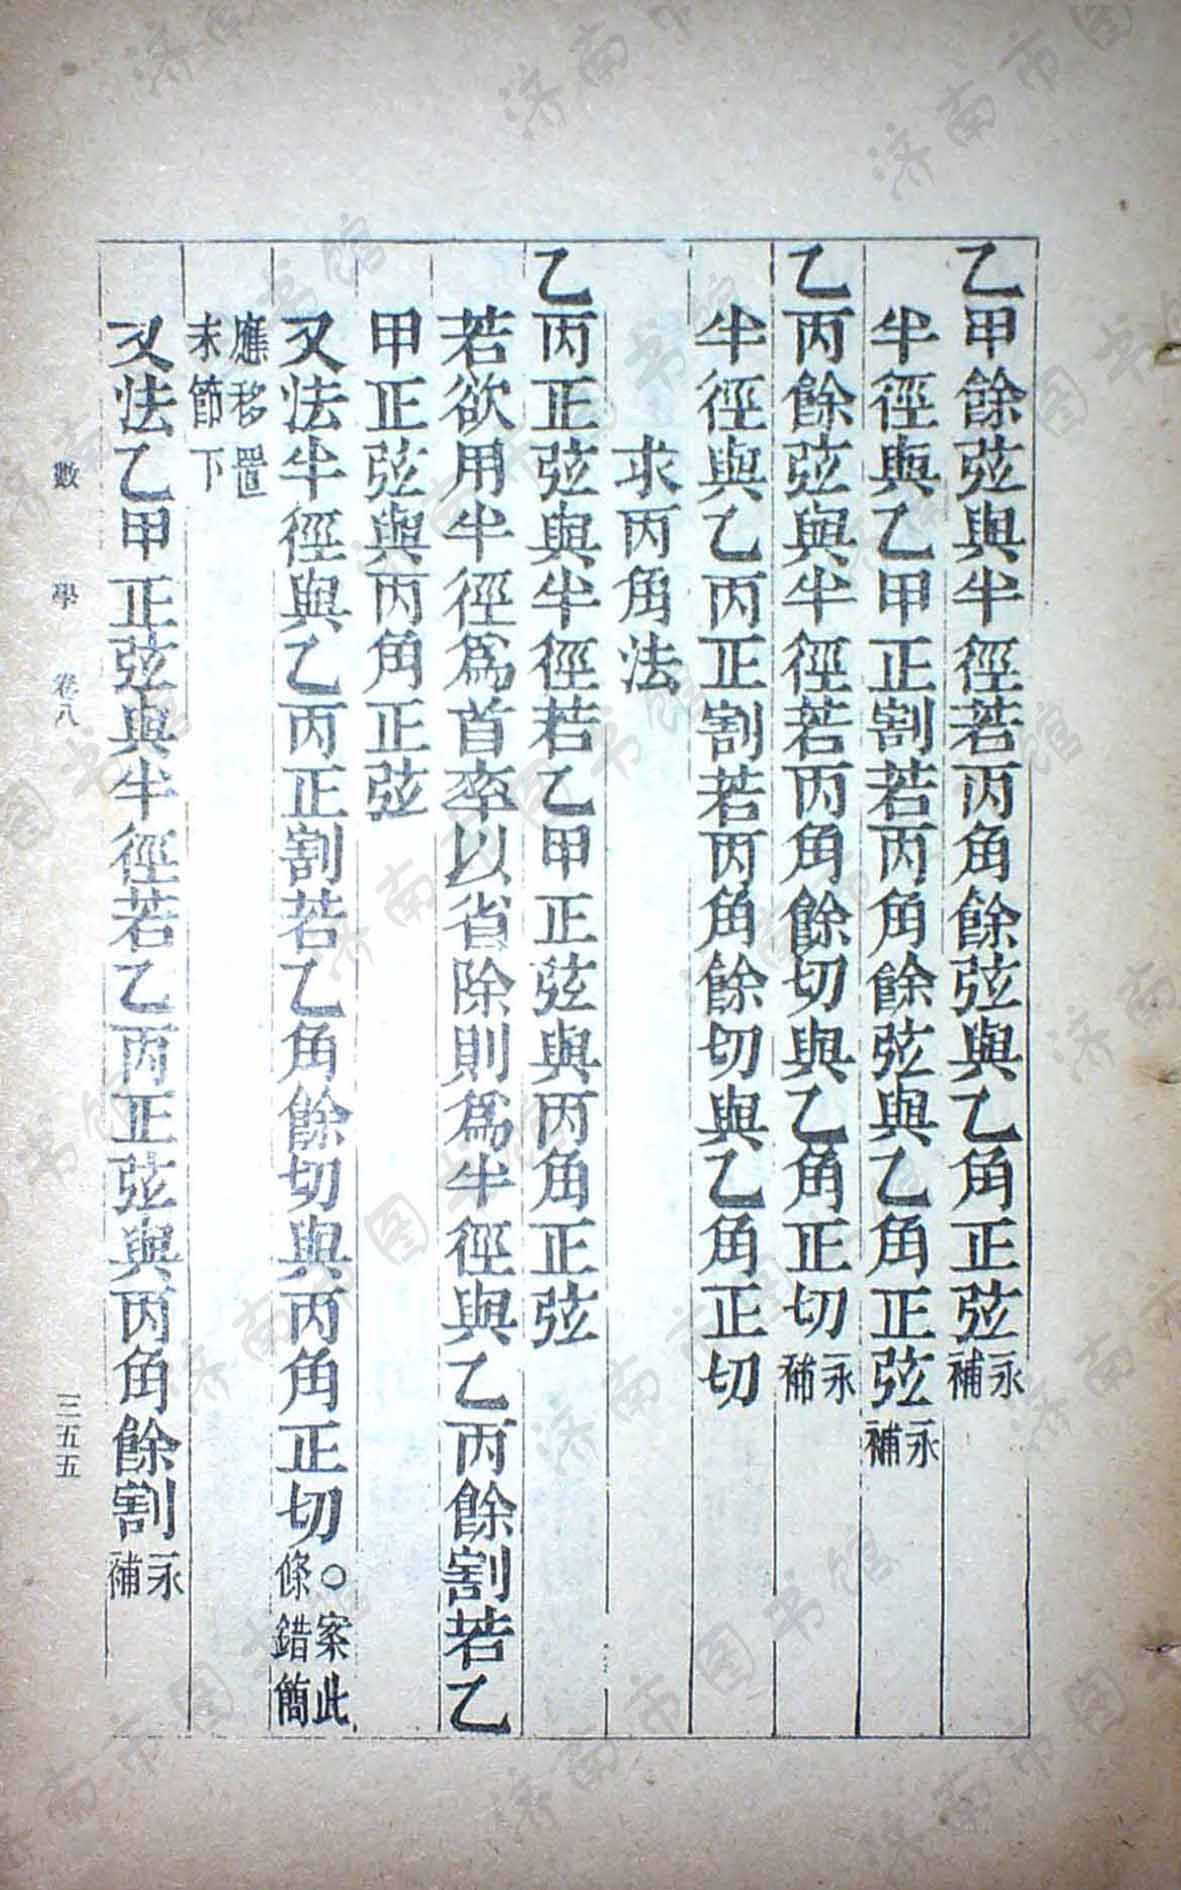 乙甲餘弦與半徑若丙角餘弦與乙角正弦永補
半徑與乙甲正割若丙角餘弦與乙角正弦永補
乙丙餘弦與半徑若丙角餘切與乙角正切永補
半徑與乙丙正割若丙角餘切與乙角正切
求丙角法
乙丙正弦與半徑若乙甲正弦與丙角正弦
若欲用半徑爲首率以省除則爲半徑與乙丙餘割若乙
甲正弦與丙角正弦
又法半徑與乙丙正割若乙角餘切與丙角正切○案此條錯簡
應移置末節下
又法乙甲正弦與半徑若乙丙正弦與丙角餘割永補
數學 卷八 三五五
济南市图书馆